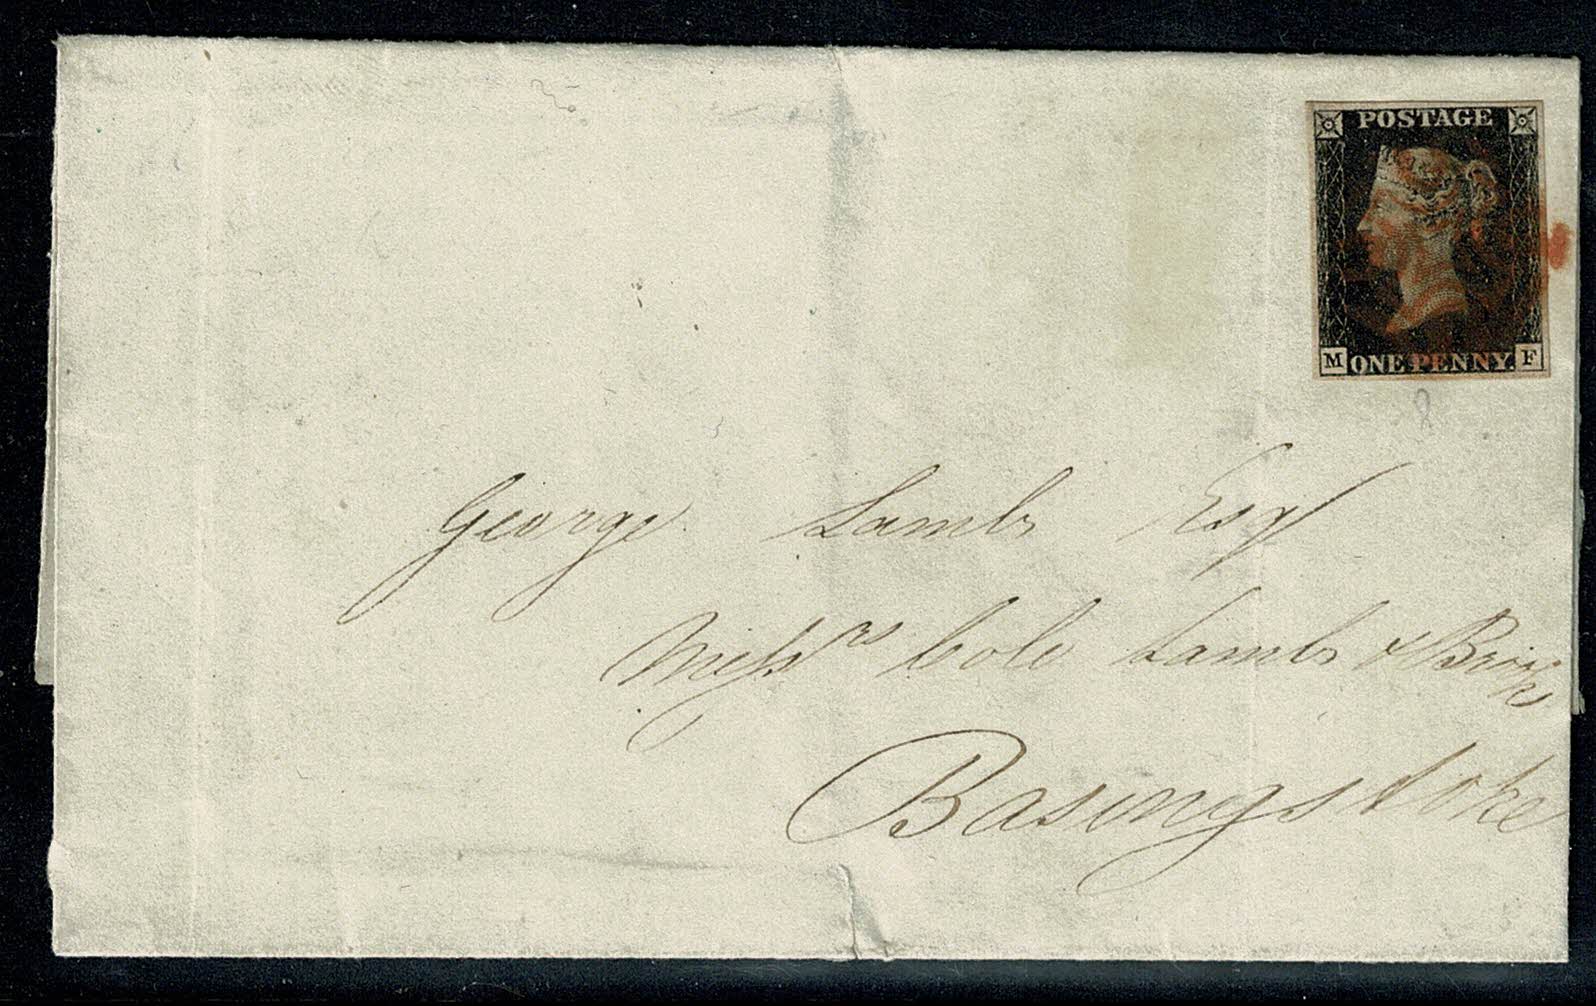 POSTAGE
M ONE PENNY. F
2
George Lamb Esqr
Messrs Cole Lamb & Brooks
Basingstoke